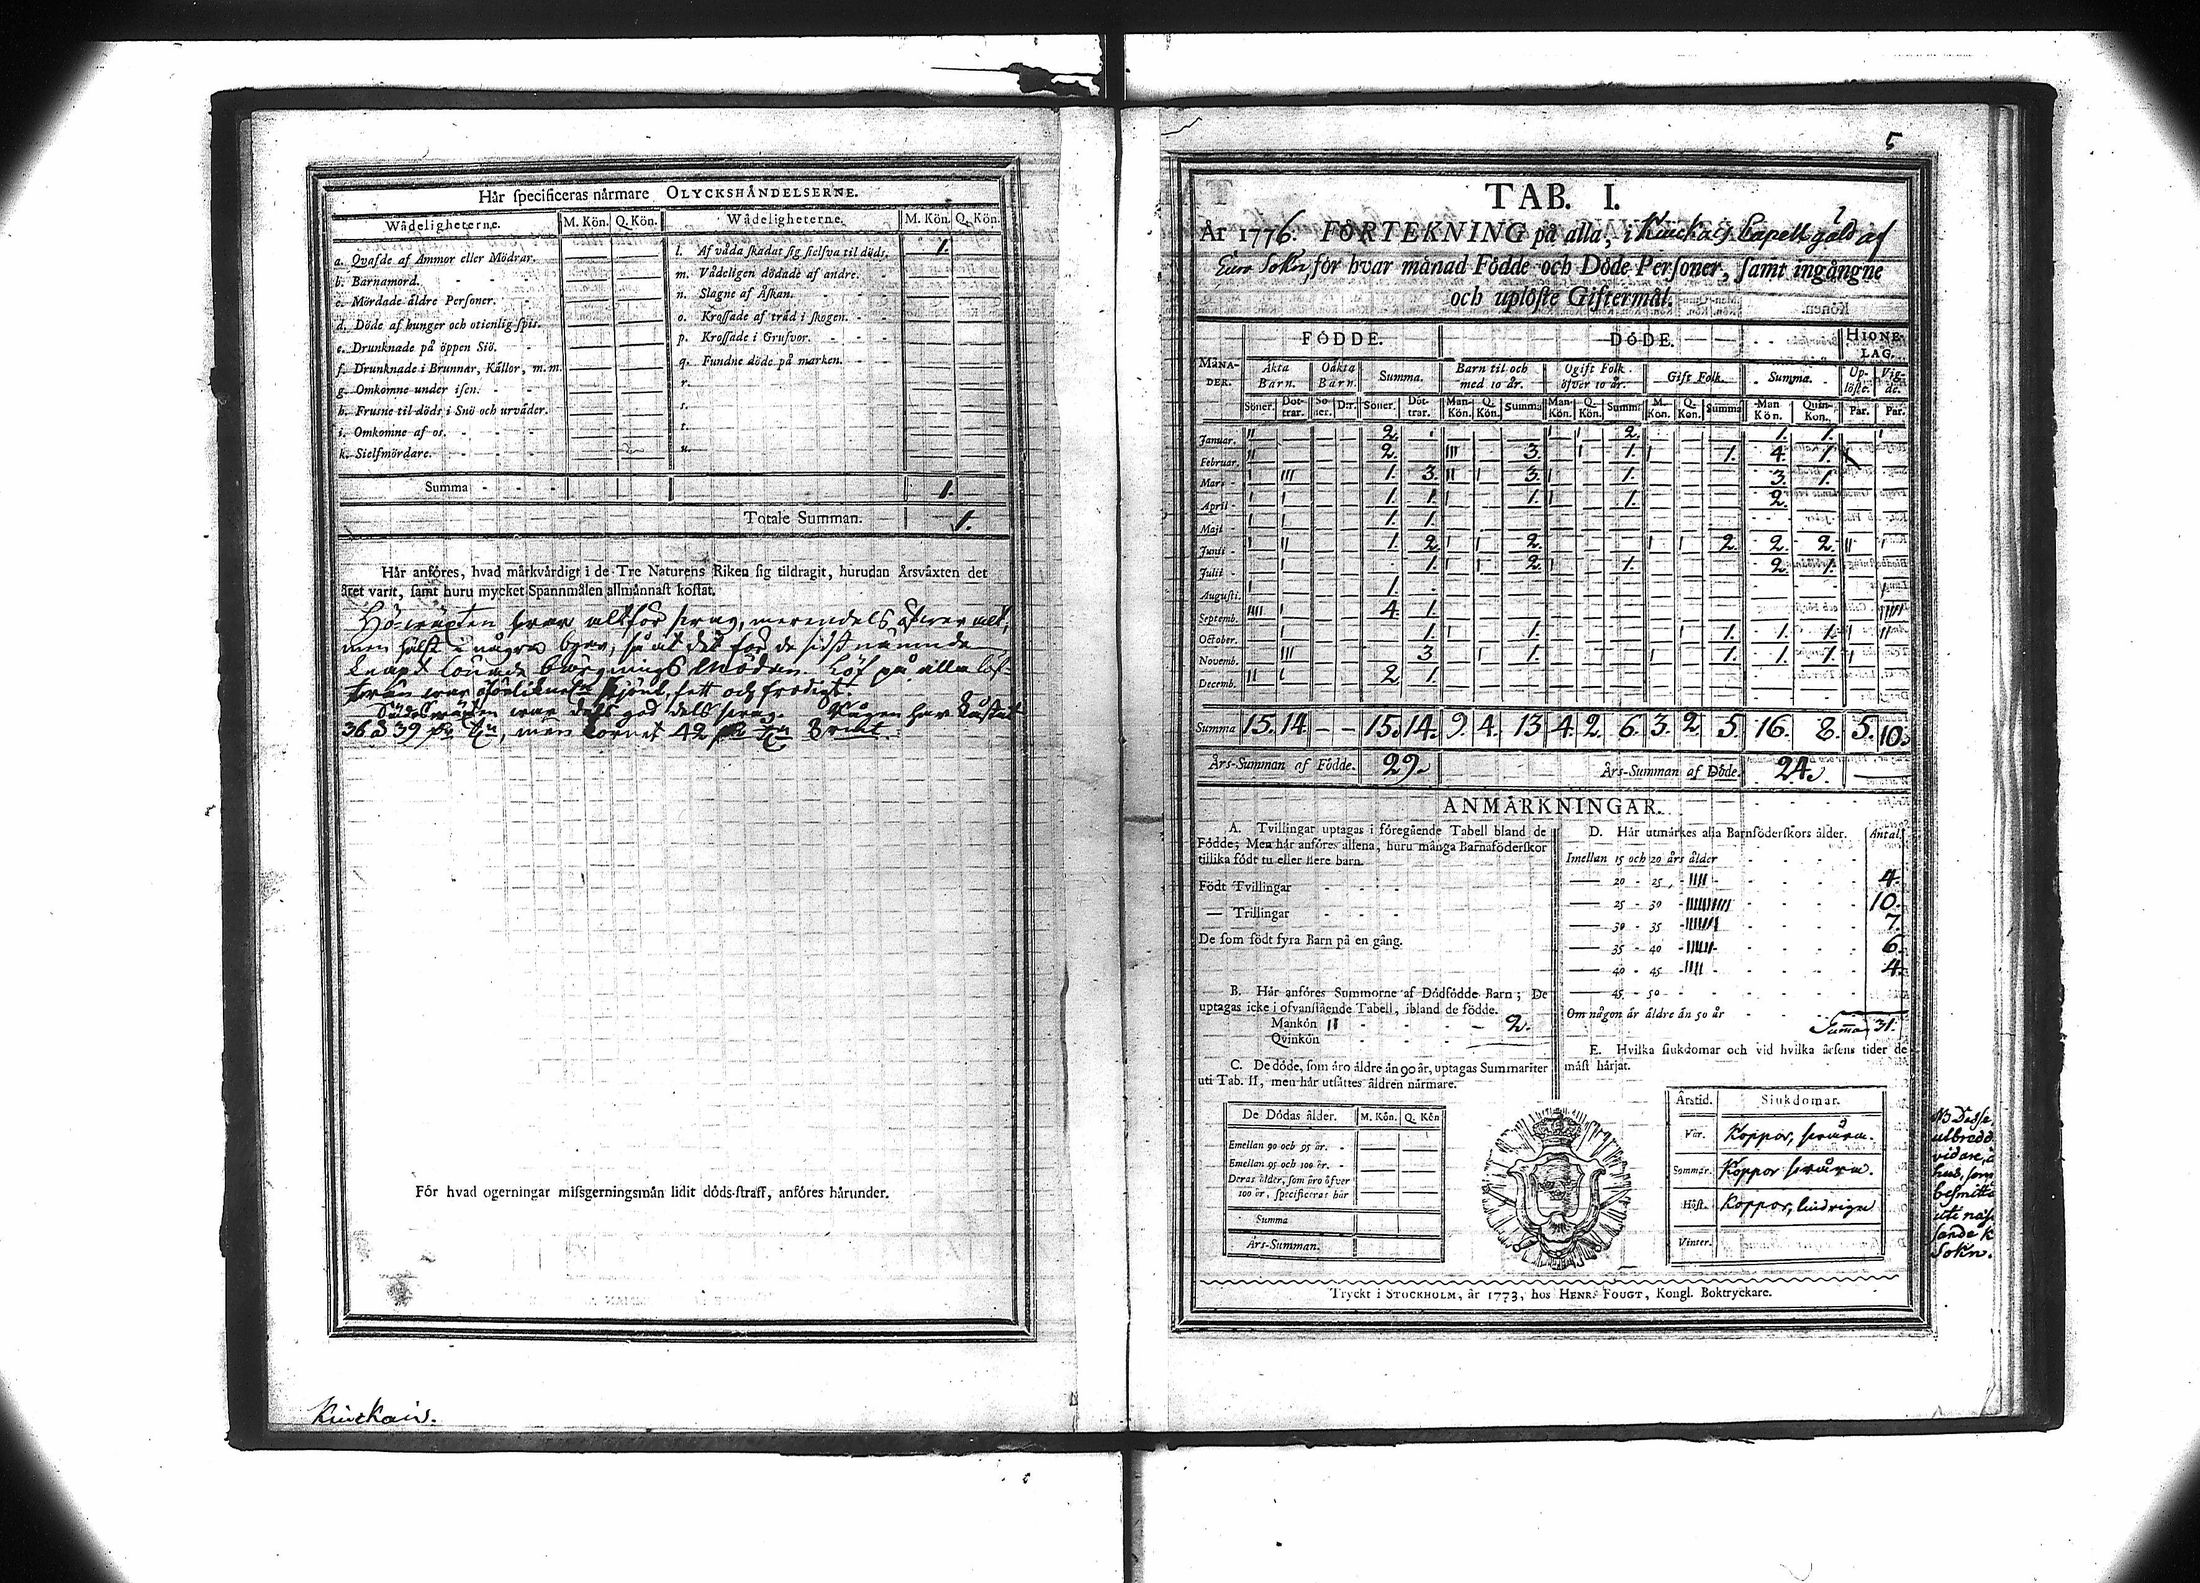 Hår specificeras nårmare OLYCKSHÅNDELSERNE.
Wådeligheterne. M. Kön. Q. Kön. Wådeligheterne. M. Kön. Q. Kön.
a. Qvafde af Ammor eller Mödrar. l. Af våda skadat sig sielfva til döds. 1.
b. Barnamord. m. Vådeligen dödade af andre.
c. Mördade åldre Personer. n. Slagne af Åskan.
d. Döde af hunger och otienlig spis. o. Krossade af tråd i skogen.
e. Drunknade på öppen Siö. p. Krossade i Grufvor.
f. Drunknade i Brunnar, Kållor, m.m. q. Fundne döde på marken.
g. Omkomne under isen. r.
h. Frusne til döds i Snö och urvåder. s.
i. Omkomne af os. t.
k. Sielfmördare. u.
Summa 1.
Totale Summan. 1.
Hår anföres, hvad mårkvårdigt i de Tre Naturens Riken sig tildragit, hurudan Årsvåxten det
året varit, samt huru mycket Spannmålen allmånnast kostat.
Hö-wäxten war altför swag, merendels öfwer alt,
men hälst i några byar, så at det för de sidst nämnde
knapt lönade bärgnings mödan. Löf på alla löf-
trän war
war dels god dels swag.
36 à 39 men kornet 42
För hvad ogerningar missgerningsmån lidit döds-straff, anföres hårunder.
Kuickais.
5
TAB. I.
År 1776. FÖRTEKNING på alla, i Kuickais Capell gäld af
Euro Sokn, för hvar månad Födde och Döde Personer, samt ingångne
och uplöste Giftermål.
MÅNADER. FÖDDE. DÖDE. HIONELAG.
Åkta Barn. Oåkta Barn. Summa. Barn til och med 10 år. Ogift Folk öfver 10 år. Gift Folk. Summa. Uplöste. Vigde.
Söner. Döttrar. Söner. D:r. Söner. Döttrar. Man-Kön. Q. Kön. Summa Man-Kön. Q. Kön. Summa M. Kön. Q. Kön. Summa Man Kön. Quin-Kon. Par. Par.
Januar. II 2. I I 2. 1. 1. I
Februar. II 2. III 3. I 1. I 1. 4. 1. I
Mars I III 1. 3. II I 3. I 1. 3. 1.
April I I 1. 1. I 1. I 1. 2.
Maji I I 1. 1.
Junii I II 1. 2. I I 2. I I 2. 2. 2. II I
Julii I 1. I I 2. I 1. 2. 1.
Augusti. I 1. I
Septemb. IIII I 4. 1. IIIII
October. I 1. I 1. I 1. 1. 1. I II
Novemb. III 3 I 1. I 1. 1. 1. I
Decemb. II I 2 1.
Summa 15. 14. – – 15. 14. 9. 4. 13 4. 2. 6. 3. 2 5. 16. 8. 5. 10.
Års-Summan af Födde. 29. Års-Summan af Döde. 24.
ANMÅRKNINGAR.
A. Tvillingar uptagas i föregående Tabell bland de
Födde; Men hår anföres allena, huru många Barnaföderskor
tillika födt tu eller flere barn.
Födt Tvillingar
— Trillingar
De som födt fyra Barn på en gång.
B. Hår anföres Summorne af Dödfödde Barn; De
uptagas icke i ofvanstående Tabell, ibland de födde.
Mankön II 2.
Qvinkön
C. De döde, som åro åldre ån 90 år, uptagas Summariter
uti Tab. II, men hår utsåttes åldren nårmare.
De Dödas ålder. M. Kön. Q. Kön
Emellan 90 och 95 år.
Emellan 95 och 100 år.
Deras ålder, som åro öfver
100 år, specificeras hår
Summa
Års-Summan.
D. Hår utmårkes alla Barnföderskors ålder. Antal.
Imellan 15 och 20 års ålder
— 20 - 25, - IIII 4.
— 25 - 30 - IIIIIIIIII 10.
— 30 - 35 - IIIIIII 7.
— 35 - 40 - IIIIII 6.
— 40 - 45 - IIII 4.
— 45 - 50
Om någon år åldre ån 50 år
Summa 31.
E. Hvilka siukdomar och vid hvilka årsens tider de
måst hårjat.
Årstid. Siukdomar.
Vår. Koppor, swåra.
Sommar. Koppor swåra.
Höst. Koppor, lindriga
Vinter.
NB Desse,
utbredd
vidare,
hus, som
besmitta
sande K
Sokn.
Tryckt i STOCKHOLM, år 1773, hos HENR. FOUGT, Kongl. Boktryckare.